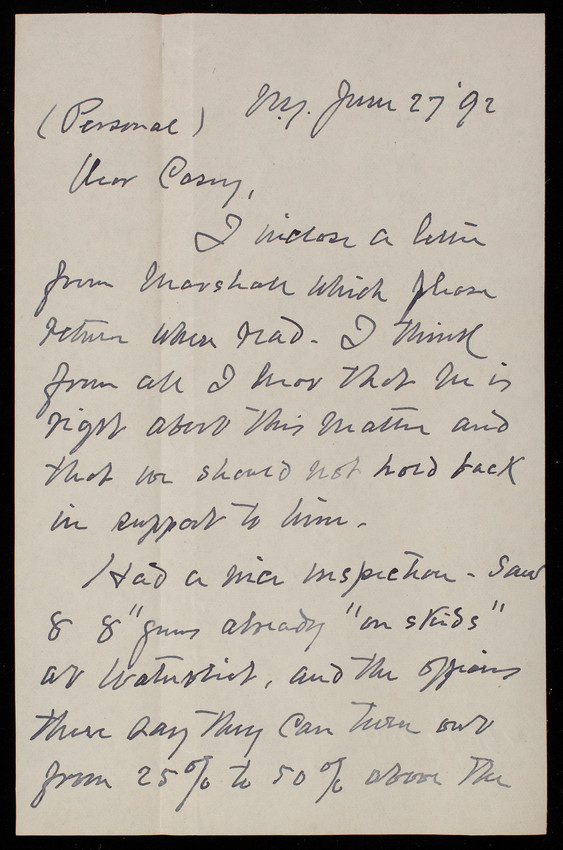 (Personal) N.Y. June 27 '92
Dear Casey,
I inclose a letter
from Marshall which please
return when read - I think
from all I hear that he is
right about this matter and
that we should not hold back
in support to him.
Had a nice inspection - Saw
8 8" guns already "on skids"
at Watervliet, and the officers
there say they can turn out
from 25% to 50% above the